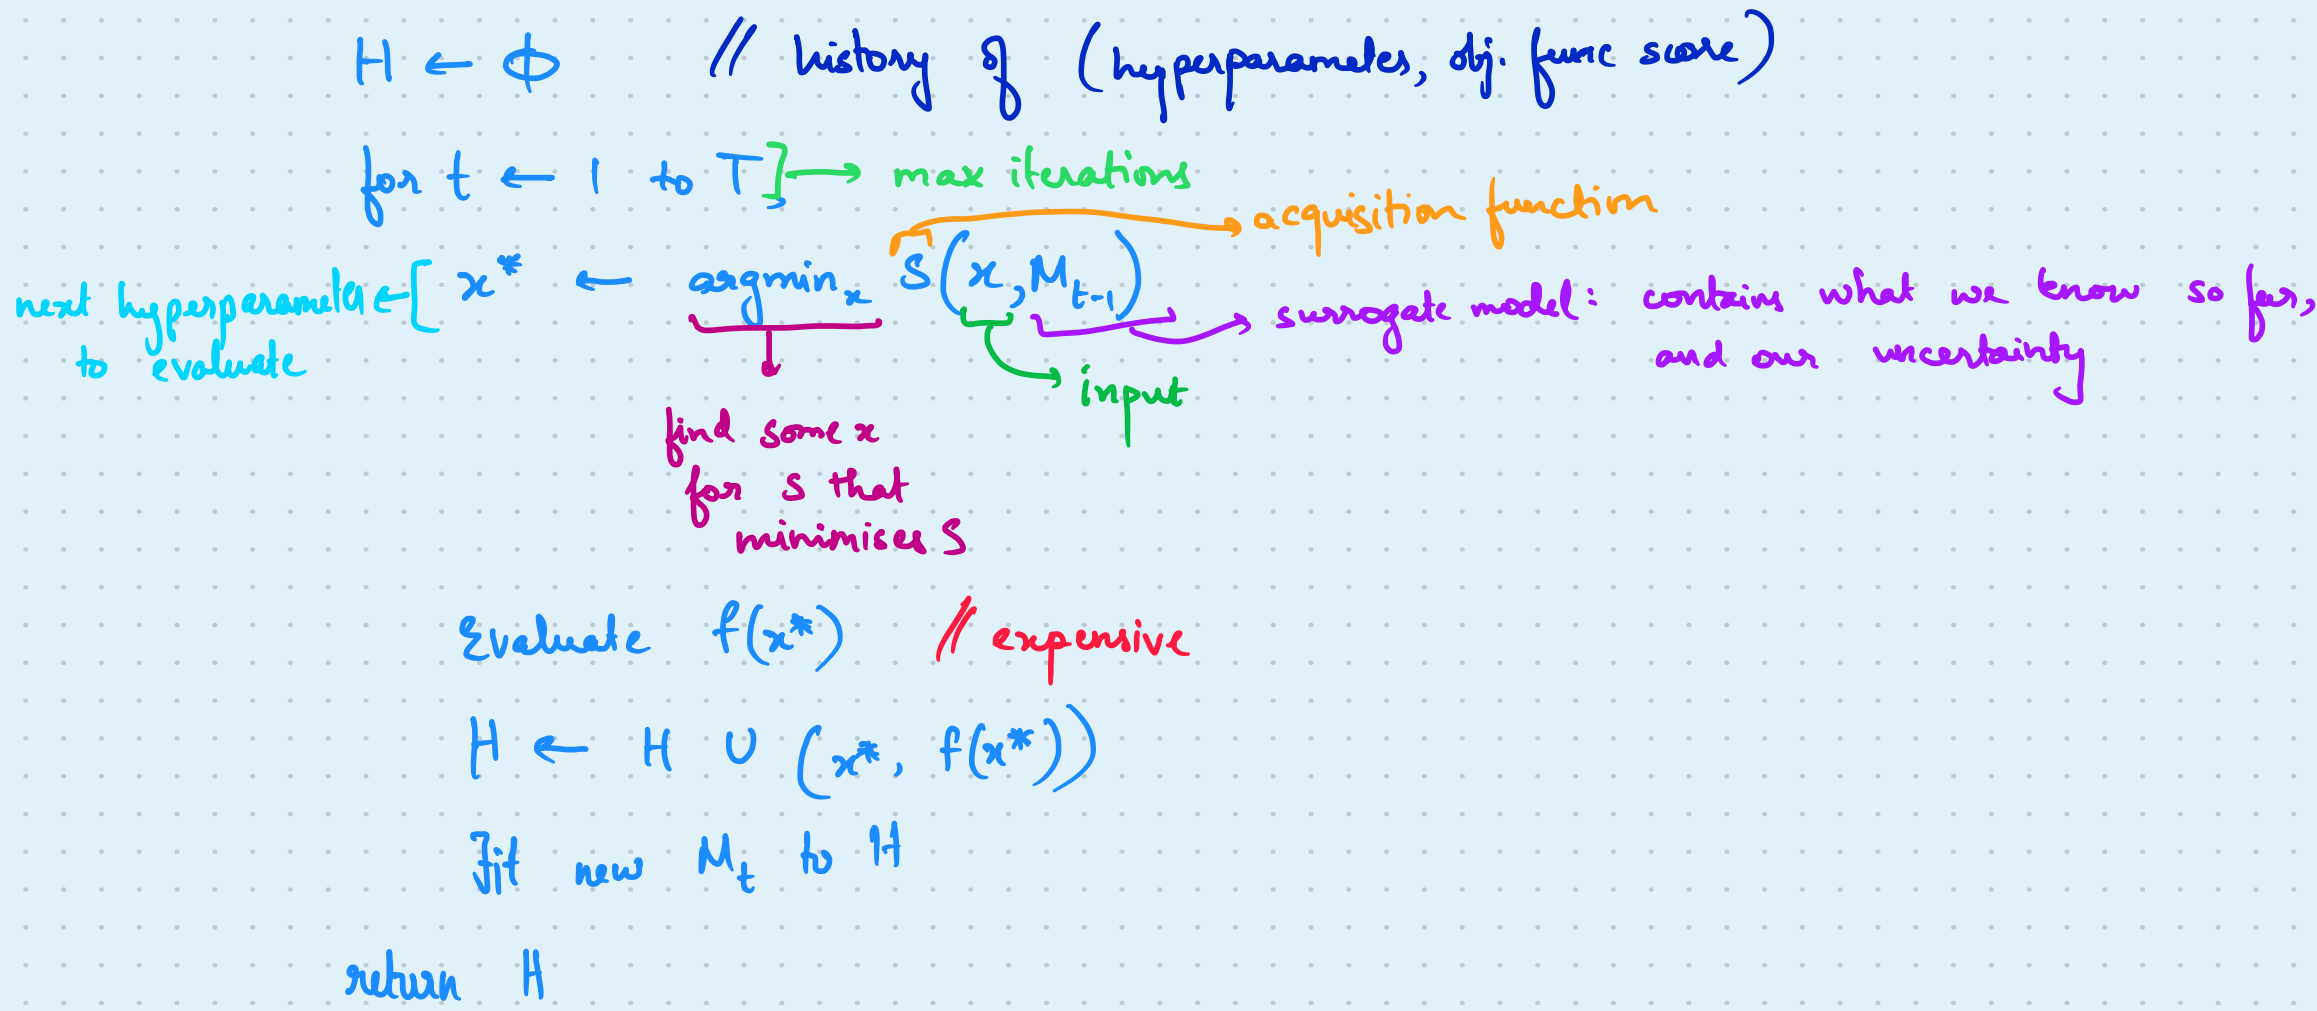 H ← ϕ // history of (hyperparameter, obj. func score)
for t ← 1 to T ] → max iterations
acquisition function
next hyperparameter ← [ x* ← argmin_x S(x, M_{t-1})
to evaluate
surrogate model: contains what we know so far,
and our uncertainty
input
find some x
for S that
minimises S
Evaluate f(x*) // expensive
H ← H ∪ (x*, f(x*))
Fit new M_t to H
return H